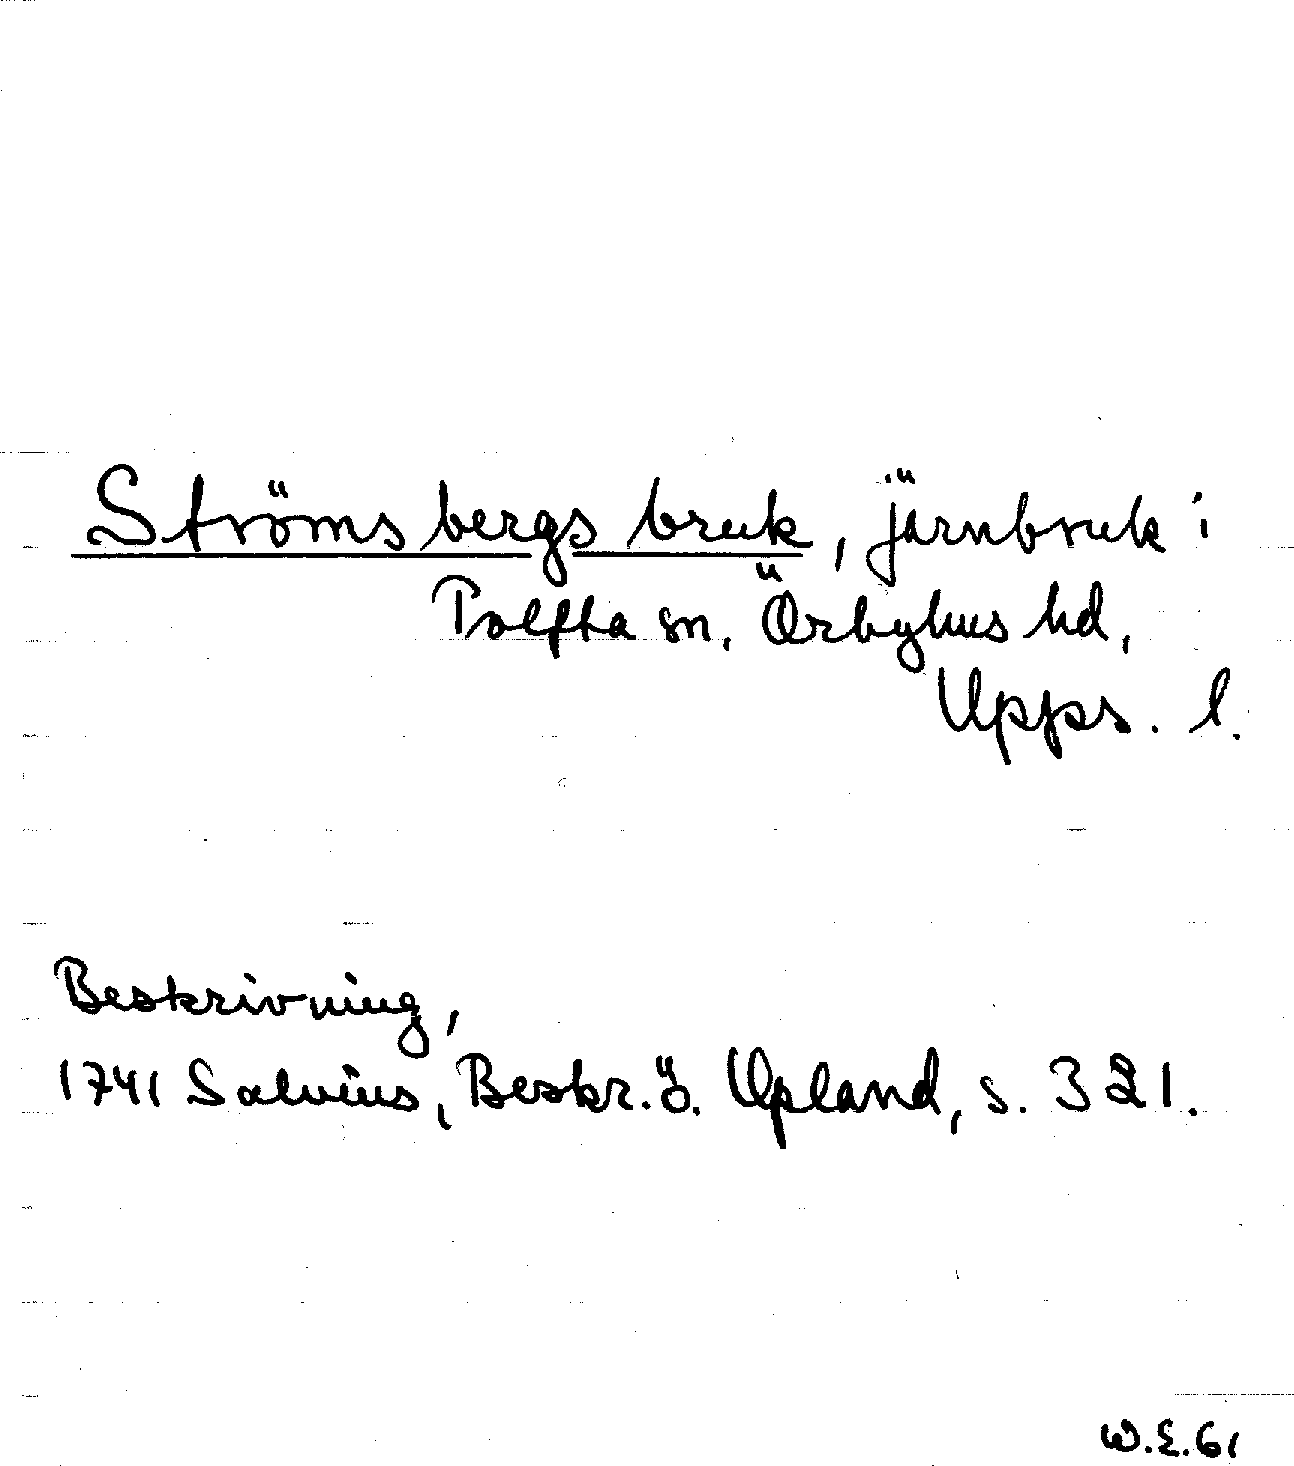 Strömsbergs bruk, järnbruk i
Tolfta sn, Örbyhus hd,
Upps. l.
Beskrivning,
1741 Salvius, Beskr. ö. Upland, s. 321.
W.E.61